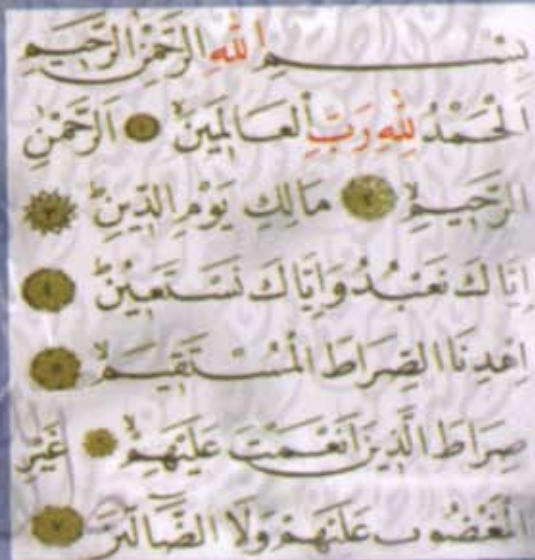 بِسْمِ اللّٰهِ الرَّحْمٰنِ الرَّحِيمِ
اَلْحَمْدُ لِلّٰهِ رَبِّ الْعَالَمِينَۙ ١ اَلرَّحْمٰنِ
الرَّحِيمِۙ ٢ مَالِكِ يَوْمِ الدِّينِۜ ٣
اِيَّاكَ نَعْبُدُ وَاِيَّاكَ نَسْتَعِينُۜ ٤
اِهْدِنَا الصِّرَاطَ الْمُسْتَقِيمَۙ ٥
صِرَاطَ الَّذِينَ اَنْعَمْتَ عَلَيْهِمْۙ ٦ غَيْرِ
الْمَغْضُوبِ عَلَيْهِمْ وَلَا الضَّالِّينَ ٧